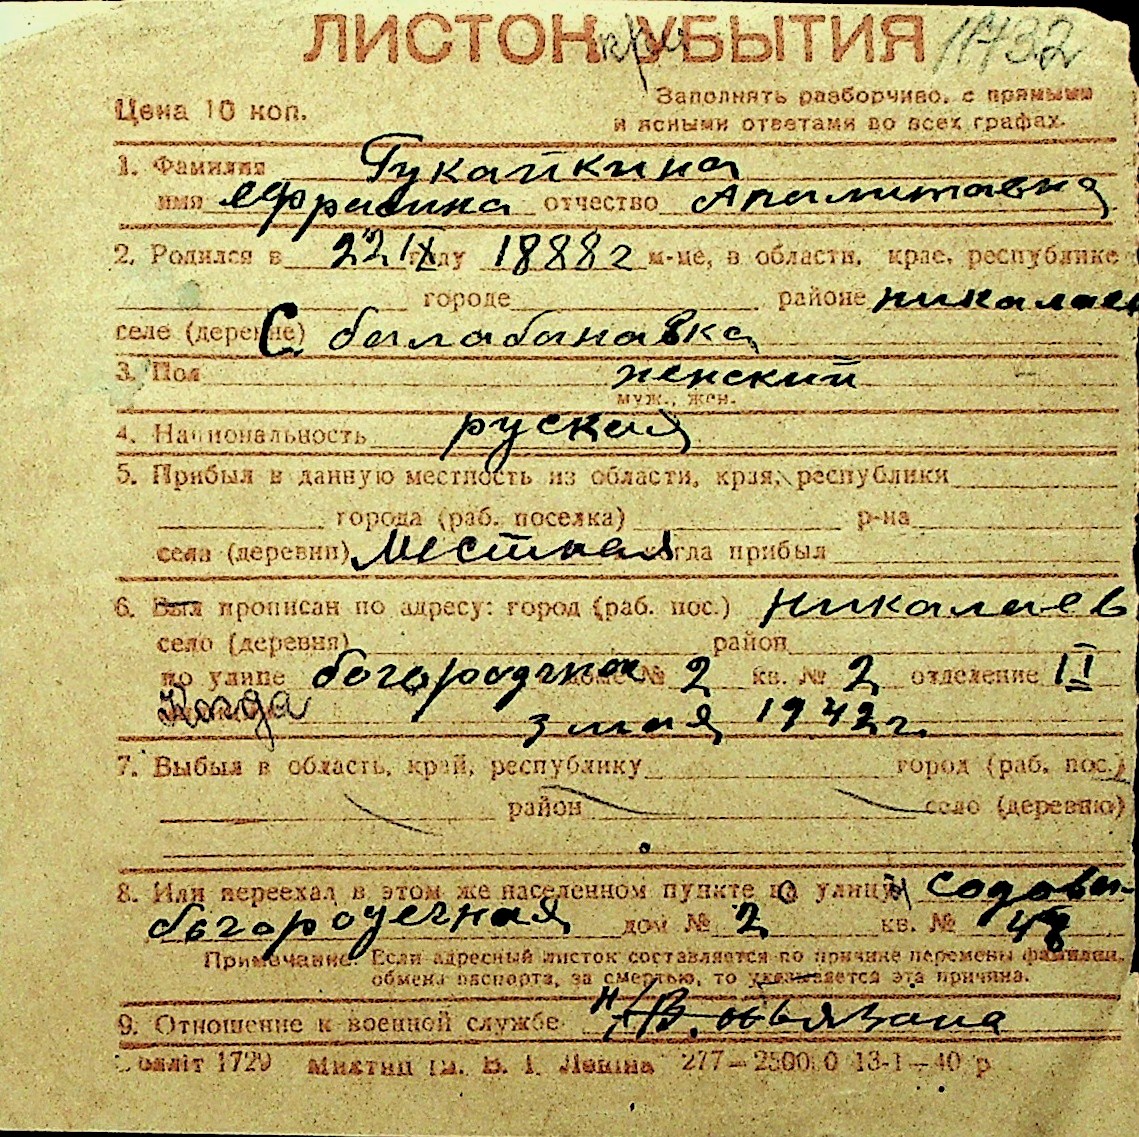 ЛИСТОК при УБЫТИЯ 11732
Цена 10 коп.
Заполнять разборчиво, с прямыми
и ясными ответами во всех графах.
1. Фамилия Гукайкина
имя Ефрасина отчество Апалитавна
2. Родился в 22 IX году 1888 г м-це, в области, крае, республике
городе районе николаев
селе (деревне) С балабанавка
3. Пол женский
муж., жен.
4. Национальность руская
5. Прибыл в данную местность из области, края, республики
города (раб. поселка) р-на
села (деревни) Местная когда прибыл
6. Был прописан по адресу: город (раб. пос.) николаев
село (деревня) район
по улице дом № 2 кв. № 2 отделение II
Когда
3 мая 1942 г.
7. Выбыл в область, край, республику город (раб. пос.)
район село (деревню)
8. Или переехал в этом же населенном пункте по улицу
дом № 2 кв. №
Примечание: Если адресный листок составляется по причине перемены фамилии,
обмена паспорта, за смертью, то указывается эта причина.
9. Отношение к военной службе н/в.
1729 277—25000 13-1—40 р